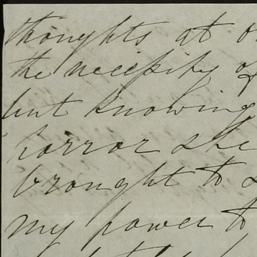 thoughts at
the necessity of
but knowing
horror she
brought to
my power to